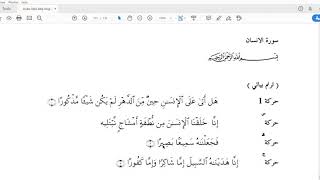 سورة الانسان
بِسْمِ اللَّهِ الرَّحْمَٰنِ الرَّحِيمِ
( ترنم بياتي )
حركة 1 هَلْ أَتَىٰ عَلَى ٱلْإِنسَٰنِ حِينٌ مِّنَ ٱلدَّهْرِ لَمْ يَكُن شَيْـًٔا مَّذْكُورًا ۝١
حركة إِنَّا خَلَقْنَا ٱلْإِنسَٰنَ مِن نُّطْفَةٍ أَمْشَاجٍ نَّبْتَلِيهِ
حركة فَجَعَلْنَٰهُ سَمِيعًۢا بَصِيرًا ۝٢
حركة إِنَّا هَدَيْنَٰهُ ٱلسَّبِيلَ إِمَّا شَاكِرًا وَإِمَّا كَفُورًا ۝٣